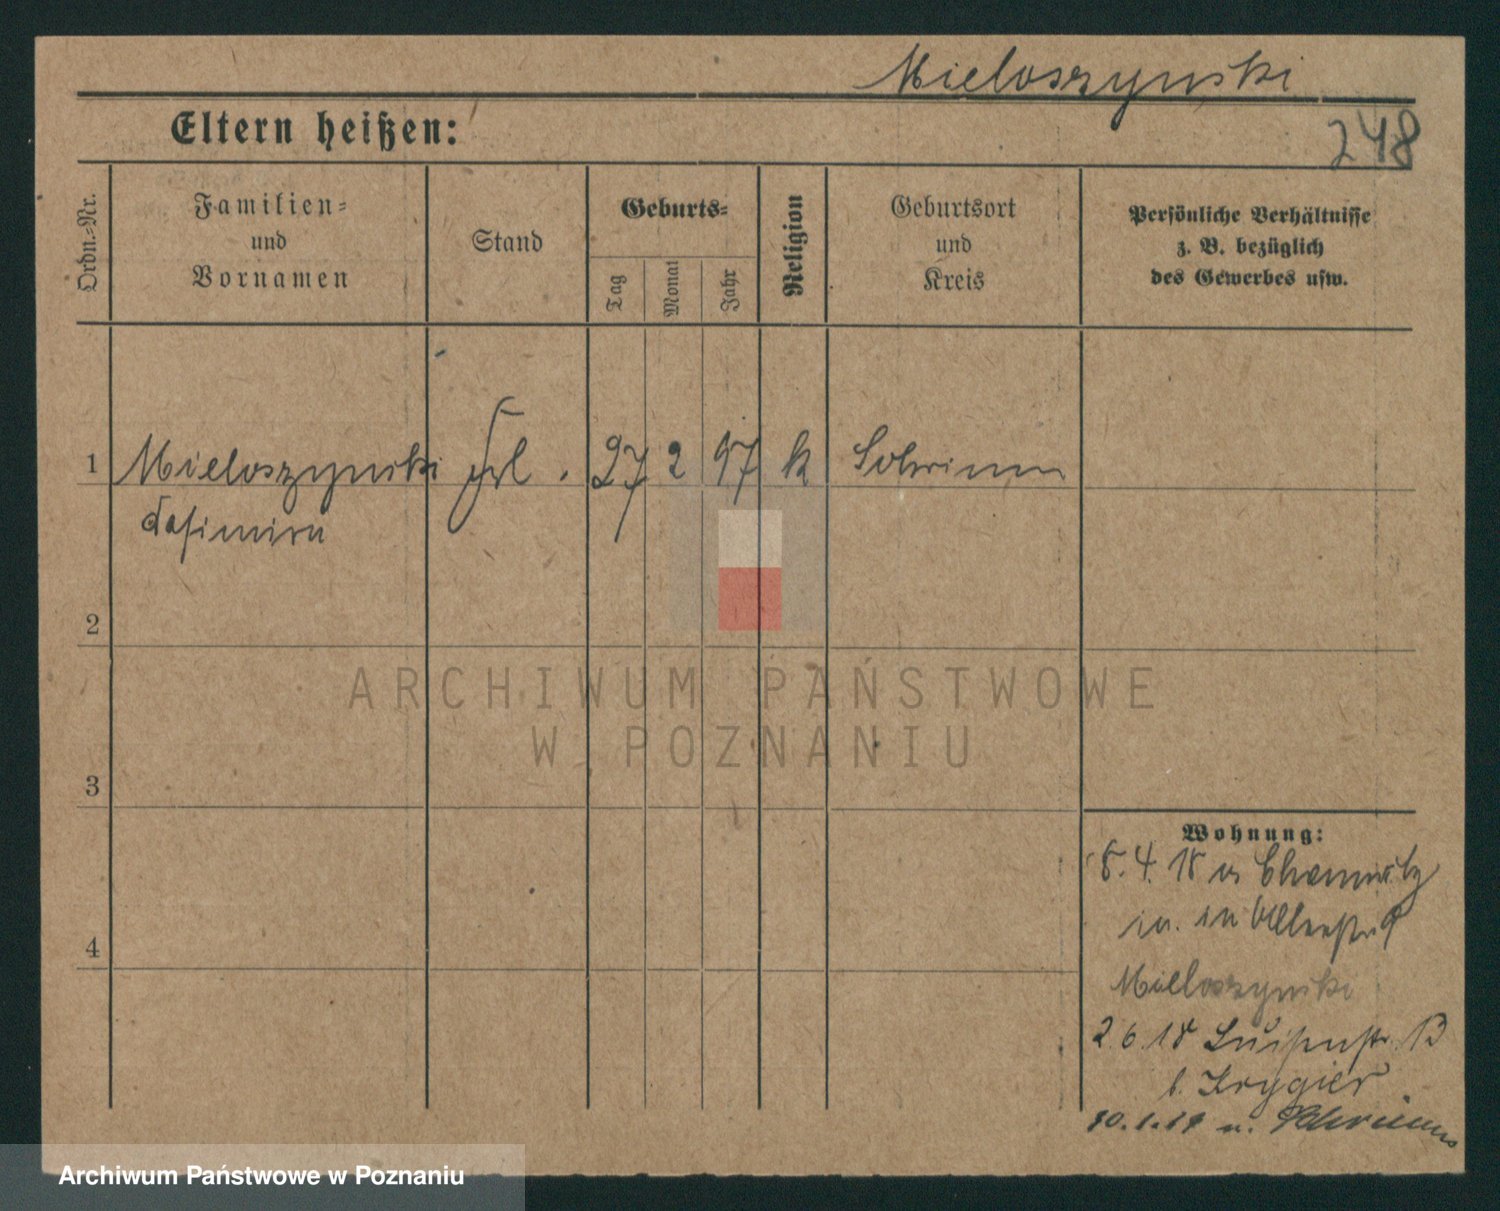 Mieloszynski
Eltern heißen:
248
Ordn.-Nr.
Familien-
und
Vornamen
Stand
Geburts-
Tag
Monat
Jahr
Religion
Geburtsort
und
Kreis
Persönliche Verhältnisse
z. B. bezüglich
des Gewerbes usw.
1 Mieloszynski Frl. 27 2 97 k Schrimm
Casimira
2
3
4
Wohnung:
8.4.18 Chemnitz
in
Mieloszynski
2.6.18 Luisenstr. 13
b. Krygier
n. Schrimm
ARCHIWUM PAŃSTWOWE
W POZNANIU
Archiwum Państwowe w Poznaniu